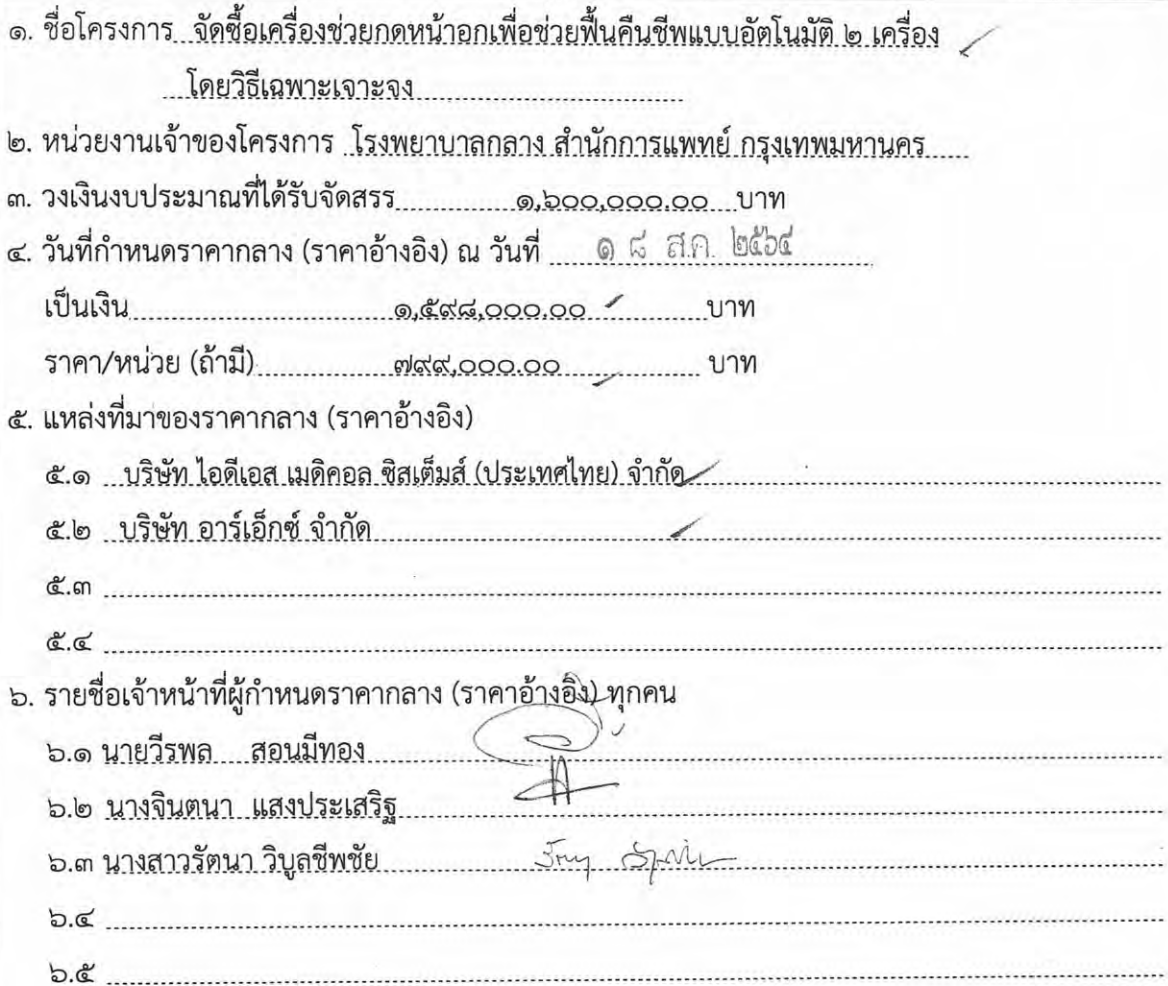 ๑. ชื่อโครงการ จัดซื้อเครื่องช่วยกดหน้าอกเพื่อช่วยฟื้นคืนชีพแบบอัตโนมัติ ๒ เครื่อง
โดยวิธีเฉพาะเจาะจง
๒. หน่วยงานเจ้าของโครงการ โรงพยาบาลกลาง สำนักการแพทย์ กรุงเทพมหานคร
๓. วงเงินงบประมาณที่ได้รับจัดสรร ๑,๖๐๐,๐๐๐.๐๐ บาท
๔. วันที่กำหนดราคากลาง (ราคาอ้างอิง) ณ วันที่ ๑ ๘ ส.ค. ๒๕๖๔
เป็นเงิน ๑,๕๙๘,๐๐๐.๐๐ บาท
ราคา/หน่วย (ถ้ามี) ๗๙๙,๐๐๐.๐๐ บาท
๕. แหล่งที่มาของราคากลาง (ราคาอ้างอิง)
๕.๑ บริษัท ไอดีเอส เมดิคอล ซิสเต็มส์ (ประเทศไทย) จำกัด
๕.๒ บริษัท อาร์เอ็กซ์ จำกัด
๕.๓
๕.๔
๖. รายชื่อเจ้าหน้าที่ผู้กำหนดราคากลาง (ราคาอ้างอิง) ทุกคน
๖.๑ นายวีรพล สอนมีทอง
๖.๒ นางจินตนา แสงประเสริฐ
๖.๓ นางสาวรัตนา วิบูลชีพชัย
๖.๔
๖.๕